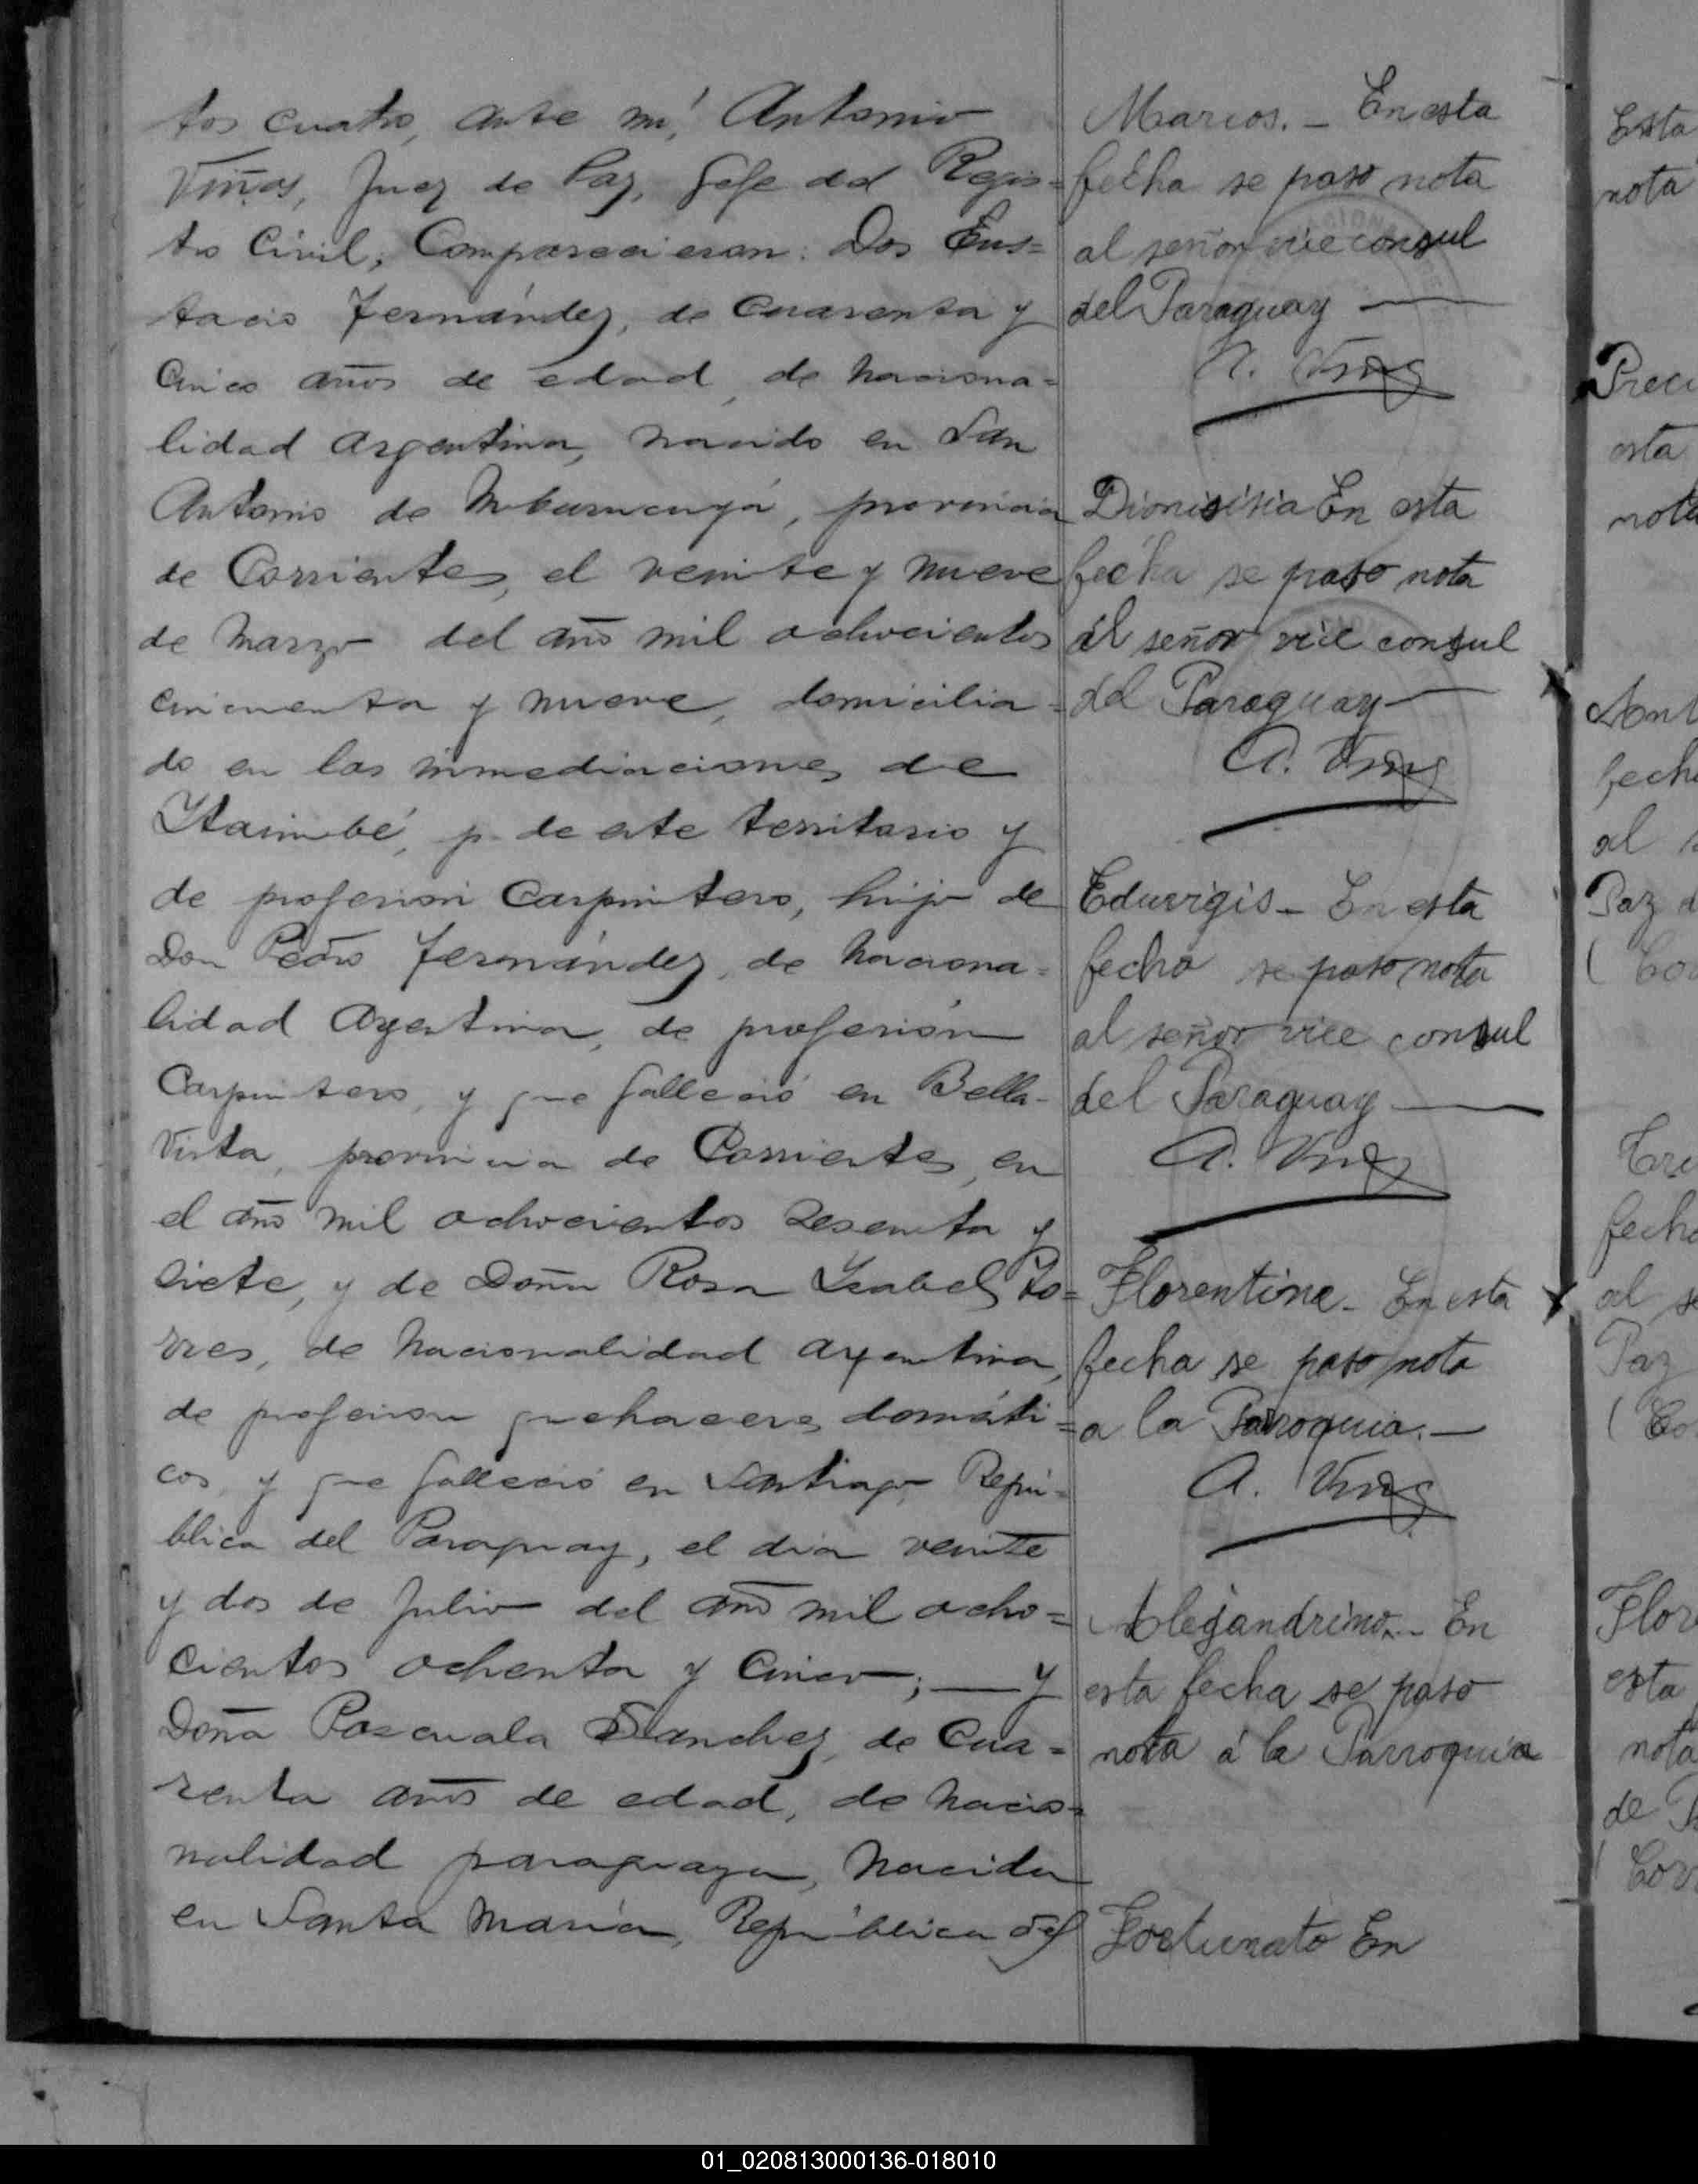 tos cuatro, ante mí, Antonio
Viñas, Juez de Paz, Gefe del Regis=
tro Civil; Comparecieron: Don Eus=
tacio Fernández, de cuarenta y
cinco años de edad, de naciona=
lidad argentina, nacido en San
Antonio de Mburucuyá, provincia
de Corrientes, el veinte y nueve
de Marzo del año mil ochocientos
cincuenta y nueve, domicilia=
do en las inmediaciones de
Itaimbé, p. de este territorio y
de profesión Carpintero, hijo de
Don Pedro Fernández, de naciona=
lidad Argentina, de profesión
Carpintero, y que falleció en Bella-
Vista, provincia de Corrientes, en
el año mil ochocientos sesenta y
siete, y de Doña Rosa Isabel To=
rres, de nacionalidad argentina,
de profesion quehaceres domésti=
cos, y que falleció en Santiago Repú=
blica del Paraguay, el día veinte
y dos de Julio del año mil ocho=
cientos ochenta y cinco; — y
Doña Pascuala Sanchez, de cua=
renta años de edad, de nacio=
nalidad paraguaya, nacida
en Santa María, República del
Marcos. - En esta
fecha se paso nota
al señor vice consul
del Paraguay —
A. Viñas
Dionisisia En esta
fecha se paso nota
al señor vice consul
del Paraguay —
A. Viñas
Eduvigis - En esta
fecha se paso nota
al señor vice consul
del Paraguay —
A. Viñas
Florentina - En esta
fecha se paso nota
a la Parroquia. —
A. Viñas
Alejandrino. - En
esta fecha se paso
nota á la Parroquia
Fortunato En
Esta
nota
esta
nota
al
Paz
al
Paz
esta
nota
de
01_020813000136-018010